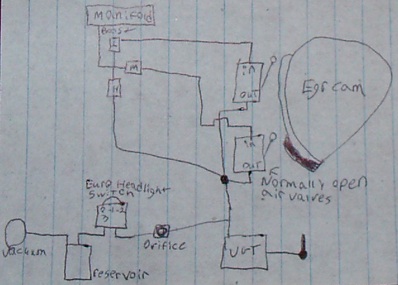 manifold
Boost
L
M
H
in
out
in
out
Egr cam
Normally open
air valves
Euro Headlight
Switch
0-1-2
Orifice
Vacuum
reservoir
VGT